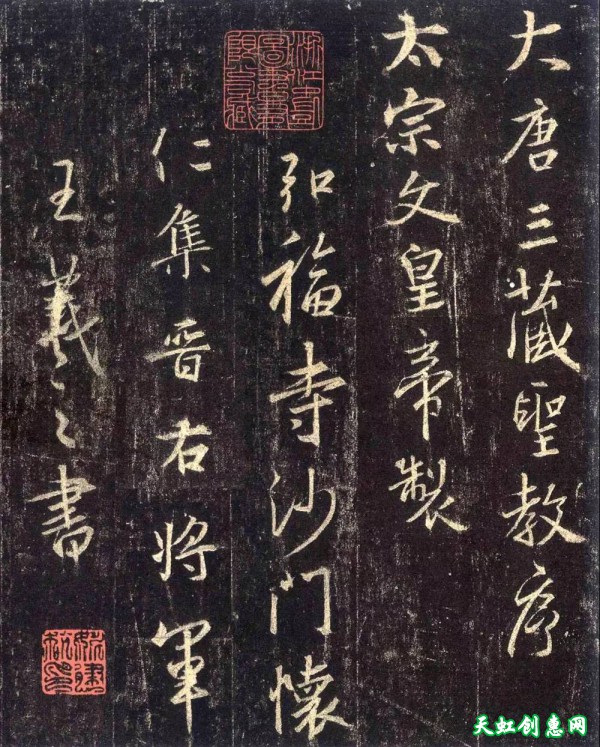 大唐三藏聖教序
太宗文皇帝製
弘福寺沙門懷
仁集晋右將軍
王羲之書
天虹创惠网